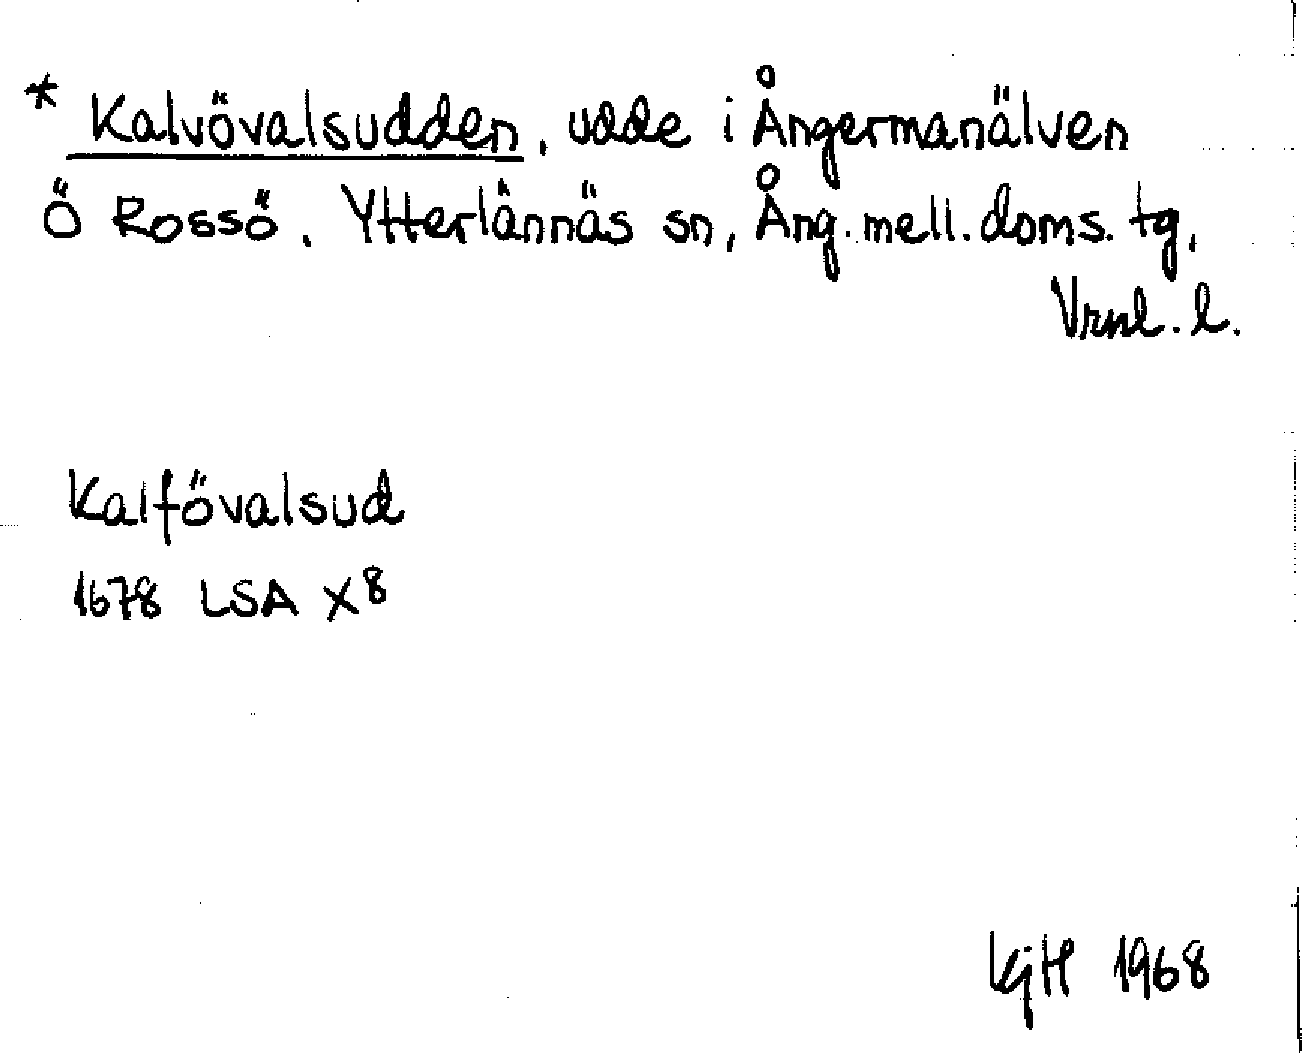 * Kalvövalsudden, udde i Ångermanälven
Ö Rossö. Ytterlännäs sn, Ång. mell. doms. tg,
Vrnl. l.
Kalfövalsud
1678 LSA X8
KjH 1968